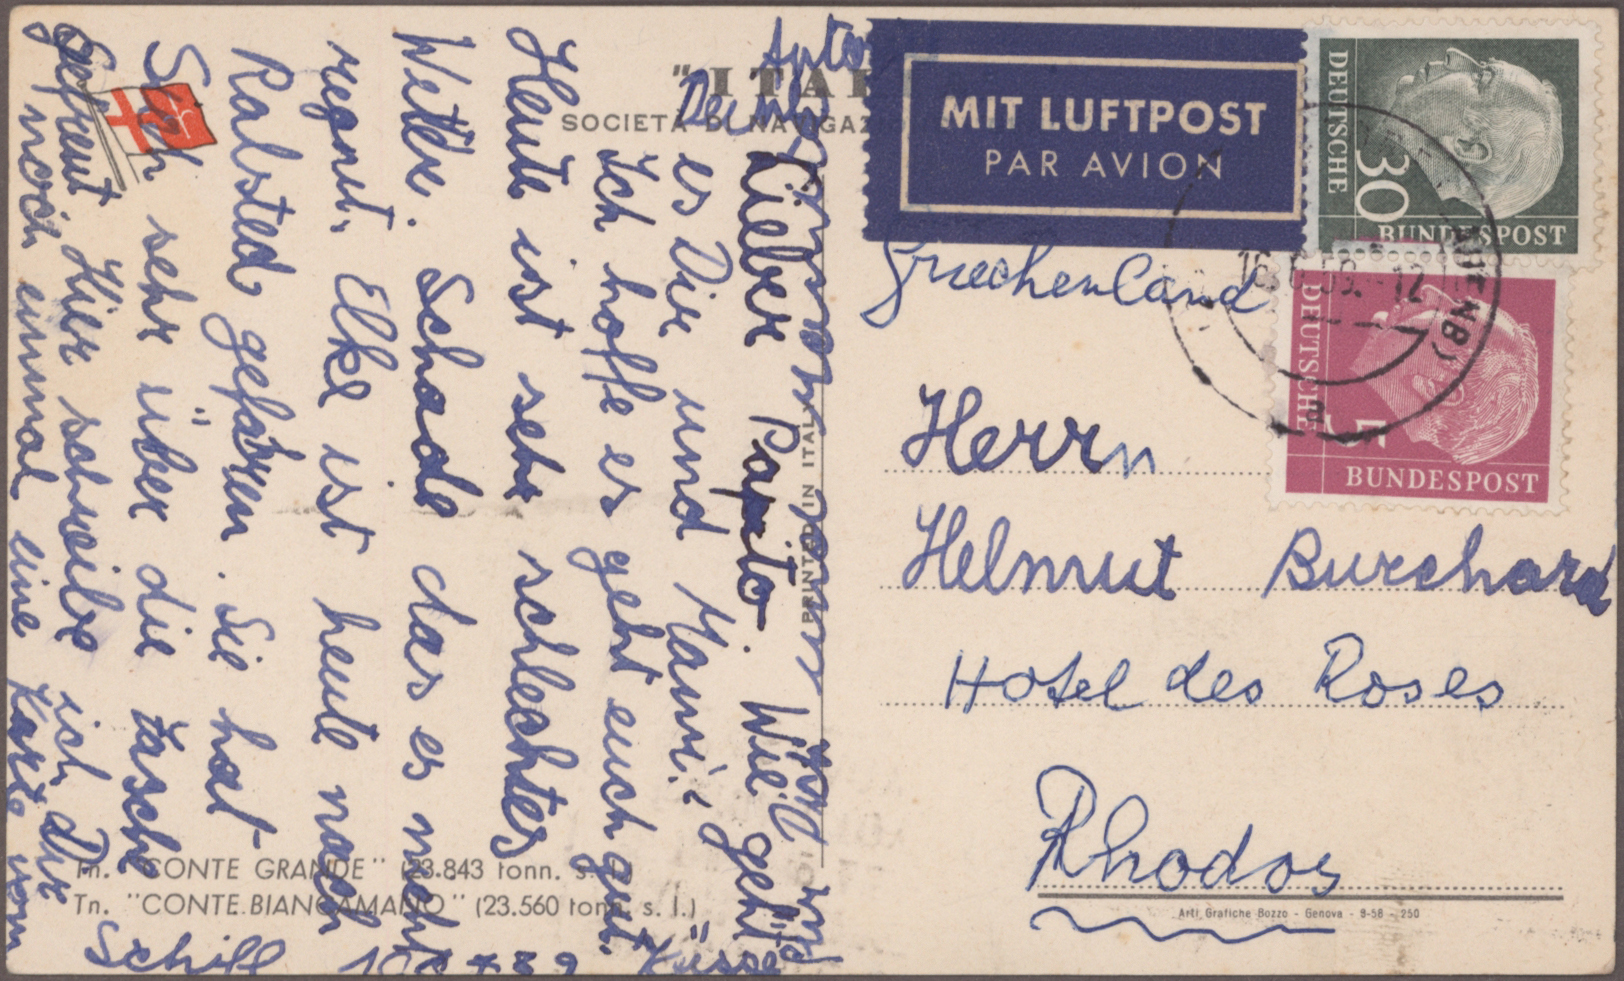 "ITAL
SOCIETÀ DI NAVIGAZI
Lieber Papito. Wie geht
es Dir und Mami?
Ich hoffe es geht euch gut.
Heute ist sehr schlechtes
Wetter. Schade das es nicht
regnet. Elke ist heute nach
Ralsted gefahren. Sie hat
Sich sehr über die Tasche
gefreut. Hier schreibe ich Dir
noch einmal eine Karte vom
Schiff
10
Küsse
PRINTED IN ITALY
Tn. "CONTE GRANDE" (23.843 tonn. s. l.)
Tn. "CONTE BIANCAMANO" (23.560 tonn. s. l.)
MIT LUFTPOST
PAR AVION
DEUTSCHE
30
BUNDESPOST
DEUTSCHE
5
BUNDESPOST
16.6.59.-12
Griechenland
Herrn
Helmut Burchard
Hotel des Roses
Rhodos
Arti Grafiche Bozzo - Genova - 9-58 - 250